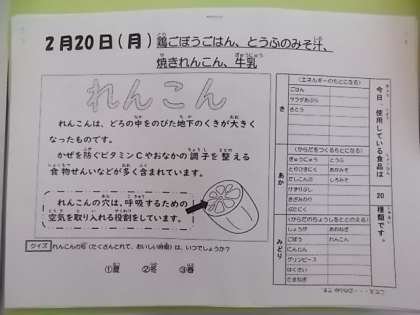 2月20日(月)鶏ごぼうごはん、とうふのみそ汁、
焼きれんこん、牛乳
れんこん
れんこんは、どろの中をのびた地下のくきが大きく
なったものです。
かぜを防ぐビタミンCやおなかの調子を整える
食物せんいなどが多く含まれています。
れんこんの穴は、呼吸するための
空気を取り入れる役割をしています。
クイズ れんこんの旬（たくさんとれて、おいしい時期）は、いつでしょうか？
①夏 ②冬 ③春
今日、使用している食品は 20 種類です。
き
(エネルギーのもとになる)
ごはん
サラダあぶら
さとう
あか
(からだをつくるもとになる)
ぎゅうにゅう とうふ
とりひきにく あかみそ
だしこんぶ しろみそ
けずりぶし
きざみのり
ぶたにく
みどり
(からだのちょうしをととのえる)
しょうが あおねぎ
ごぼう れんこん
にんじん
グリンピース
はくさい
たまねぎ